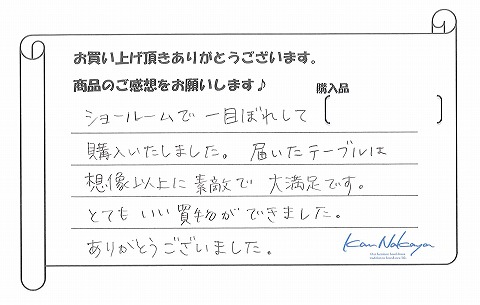 お買い上げ頂きありがとうございます。
商品のご感想をお願いします♪
購入品
ショールームで一目ぼれして
購入いたしました。届いたテーブルは
想像以上に素敵で大満足です。
とてもいい買物ができました。
ありがとうございました。
KanNakaya